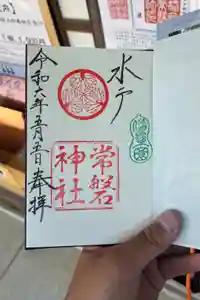 水戸
常磐
神社
令和六年五月五日 奉拝